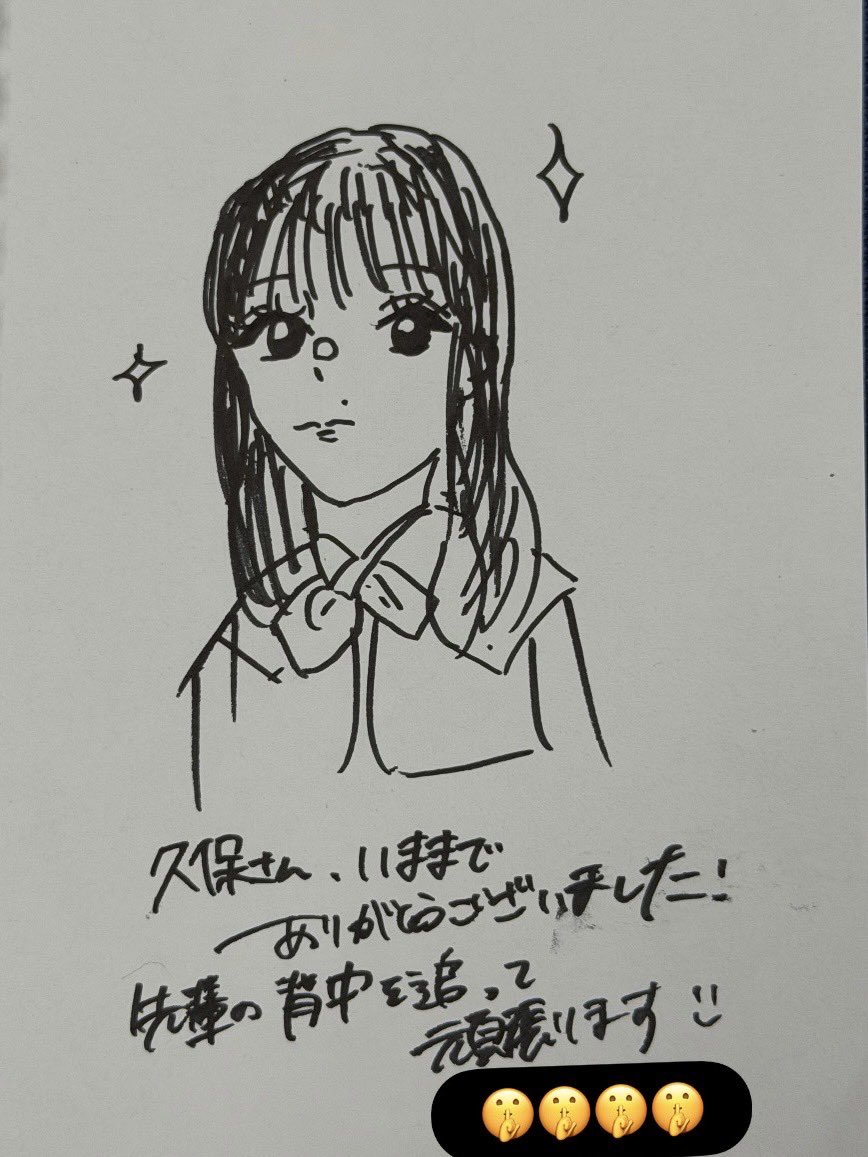 久保さん、いままで
ありがとうございました！
先輩の背中を追って
頑張ります